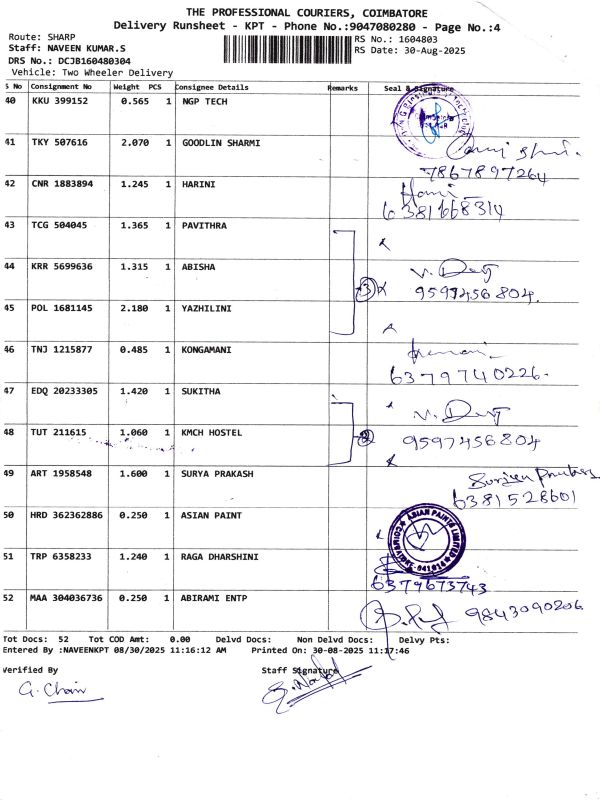 THE PROFESSIONAL COURIERS, COIMBATORE
Delivery Runsheet - KPT - Phone No.:9047080280 - Page No.:4
Route: SHARP RS No.: 1604803
Staff: NAVEEN KUMAR.S RS Date: 30-Aug-2025
DRS No.: DCJB160480304
Vehicle: Two Wheeler Delivery
S No Consignment No Weight PCS Consignee Details Remarks Seal & Signature
40 KKU 399152 0.565 1 NGP TECH
41 TKY 507616 2.070 1 GOODLIN SHARMI
7867897264
42 CNR 1883894 1.245 1 HARINI
6381668314
43 TCG 504045 1.365 1 PAVITHRA
44 KRR 5699636 1.315 1 ABISHA
3 9597456804.
45 POL 1681145 2.180 1 YAZHILINI
46 TNJ 1215877 0.485 1 KONGAMANI
6379740226.
47 EDQ 20233305 1.420 1 SUKITHA
48 TUT 211615 1.060 1 KMCH HOSTEL
2 9597456804
49 ART 1958548 1.600 1 SURYA PRAKASH
6381528601
50 HRD 362362886 0.250 1 ASIAN PAINT ASIAN PAINTS LIMITED
51 TRP 6358233 1.240 1 RAGA DHARSHINI
6379673743
52 MAA 304036736 0.250 1 ABIRAMI ENTP 9843090206
Tot Docs: 52 Tot COD Amt: 0.00 Delvd Docs: Non Delvd Docs: Delvy Pts:
Entered By :NAVEENKPT 08/30/2025 11:16:12 AM Printed On: 30-08-2025 11:17:46
Verified By Staff Signature